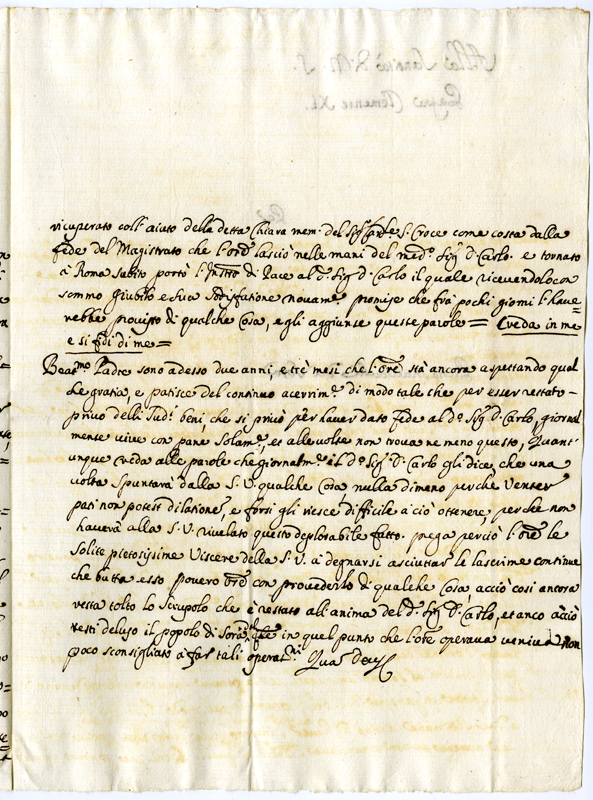 Alla Santità di N. S.
Papa Clemente XI.
ricuperato coll'aiuto della detta chiara mem. del Sigr Card.e S. Croce come costa dalla
fede del Magistrato che l'Ore lasciò nelle mani del med.o Sig.r D. Carlo. e tornato
à Roma subito portò l'Instro di Pace al d.o Sig.r D. Carlo il quale ricevendolo con
sommo giubilo e sua sodisfatione novam.e promise che frà pochi giorni l'have=
rebbe provisto di qualche cosa, e gli aggiunse queste parole = Creda in me
e si fidi di me =
Beat.mo Padre sono adesso due anni, e trè mesi che l'Ore stà ancora aspettando qual
che gratia, e patisce del continuo acerrim.e di modo tale che per esser restato
privo delli Sud.i beni, che si privò per haver dato fede al d.o Sig.r D. Carlo, giornal
mente vive con pane solam.e, et alle volte non trova ne meno questo, Quant'
unque creda alle parole che giornalm.e il d.o Sig.r D. Carlo gli dice, che una
volta spuntarà dalla S. V. qualche cosa, nulla dimeno perche Venter
pati non potest dilatione, e forsi gli riesce difficile a ciò ottenere, perche non
haverà alla S. V. rivelato questo deplorabile fatto. prega perciò l'Ore le
solite pietosissime Viscere della S. V. a degnarsi asciuttar le lacrime continue
che butta esso povero Ore con provederlo di qualche cosa, acciò così ancora
resta tolto lo scrupolo che è restato all'anima del d.o Sig.r D. Carlo, et anco acciò
resti deluso il popolo di Sora, che in quel punto che l'Ore operava veniva non
poco sconsigliato à far tali operat.ni Quas Deus